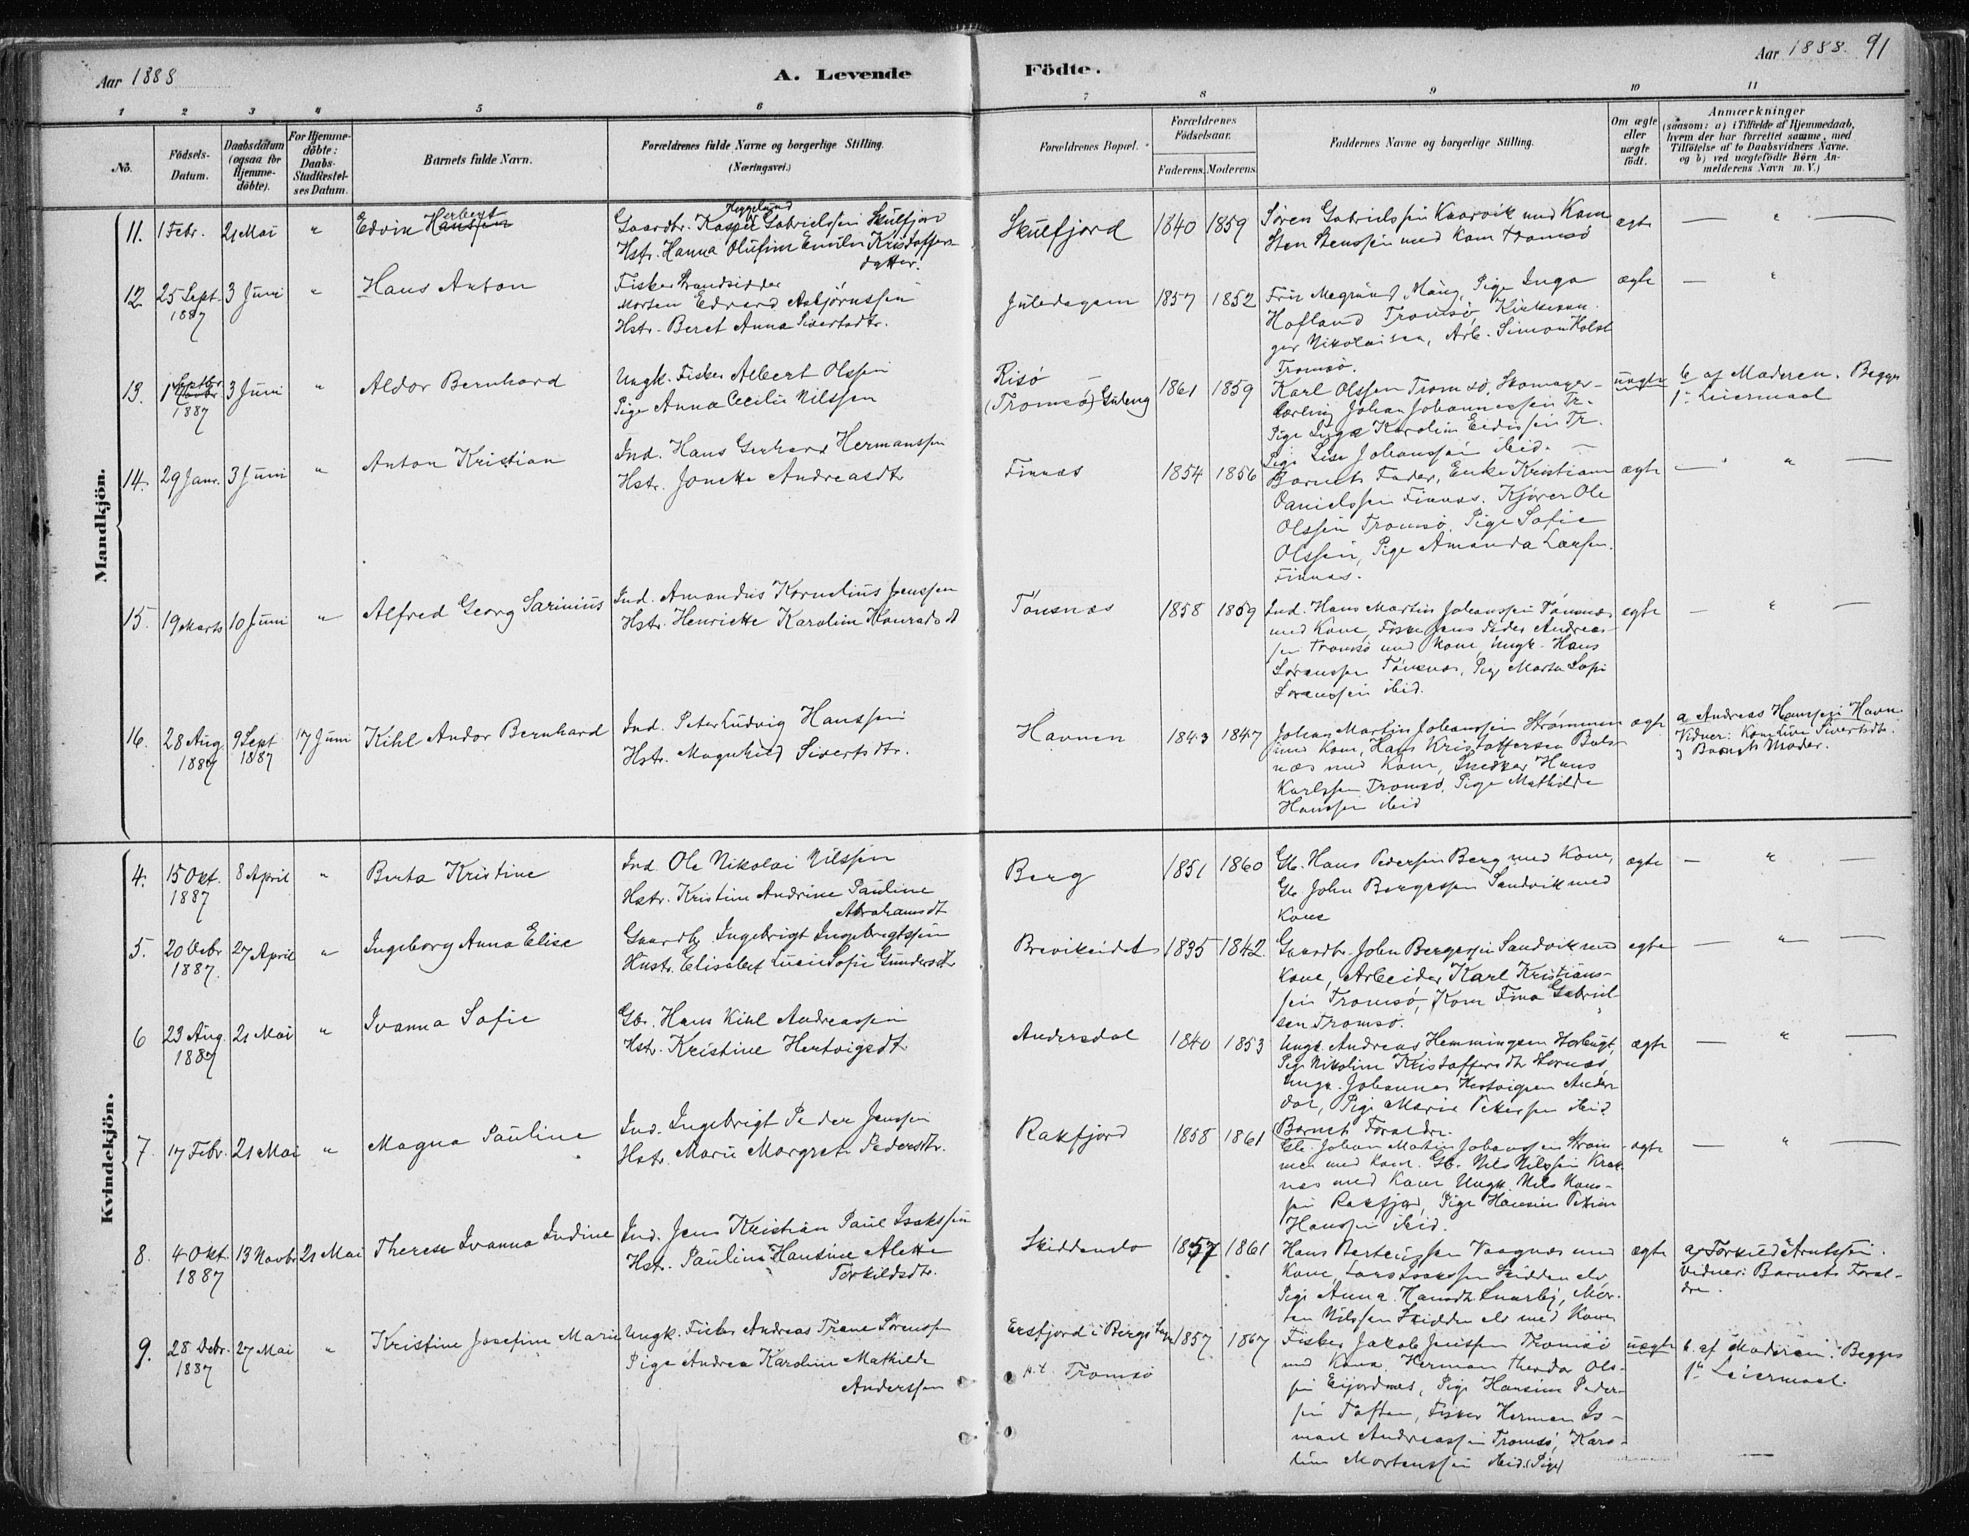 Aar 1888
A. Levende
Födte.
Aar 1888. 91
1 2 3 4 5 6 7 8 9 10 11
No.
Födsels-Datum.
Daabsdatum (ogsaa for Hjemmedöbte).
For Hjemmedöbte: Daabs-Stadfæstelses Datum.
Barnets fulde Navn.
Forældrenes fulde Navne og borgerlige Stilling. (Næringsvei.)
Forældrenes Bopæl.
Forældrenes Födselsaar.
Faderens. Moderens.
Faddernes Navne og borgerlige Stilling.
Om ægte eller uægte födt.
Anmærkninger
(saasom: a) i Tilfælde af Hjemmedaab, hvem der har forrettet samme, med Tilföielse af to Daabsvidners Navne. og b) ved uægtefödte Börn Anmelderens Navn m. V.)
Mandkjön.
11. 1 Febr. 21 Mai " Edvin Herbert Hanssen
Gaardbr. Kasper Gabrielssen Skulfjord
Hst. Hanna Olufine Emilie Kristoffersdatter.
Skulfjord 1840 1859
Sören Gabrielssen Kaarvik med Kone
Sten Stenssen med Kone Tromsö
ægte — " —
12 25 Sept. 1887 3 Juni " Hans Anton
Fisker Strandsidder
Morten Edvard Asbjörnssen
Hstr. Beret Anna Sivertsdtr.
Juledagem 1857 1852
Pige Inga
Hofland Tromsö
Nikolaisen, Arb. Simon Holst
Tromsö.
ægte — "
13. 1 Septbr 1887 3 Juni " Aldor Bernhard
Ungk. Fisker Albert Olssen
Pige Anna Cecilie Nilssen
Risö —
(Tromsö) 1861 1859
Karl Olssen Tromsö, Skomager-
lærling Johan Johannessen Tr.
Pige Inga Karoline Tr.
Pige Lise Johanssen ibid. —
uægte b. af Moderen. Begges
1ste Leiermaal
14. 29 Janr. 3 Juni " Anton Kristian
Ind. Hans Gerhard Hermanssen
Hstr. Jonette Andreasdtr
Finnæs 1854 1856
Barnets Fader, Enke Kristiane
Danielssen Finnæs. Kjörer Ole
Olssen Tromsö. Pige Sofie
Olssen, Pige Amanda Larsen.
Finnæs.
ægte — " —
15. 19 Marts 10 Juni " Alfred Georg Sarinius
Ind. Amandus Kornelius Jenssen
Hstr. Henriette Karoline Konradsdt
Tönsnæs 1858 1859
Ind. Hans Martin Johanssen Tönsnæs
med Kone, Fisker Jens Peder Andreas-
sen Tromsö med Kone, Ungk. Hans
Sörenssen Tönsnæs, Pige Marta Sofie
Sörenssen ibid.
ægte — " —
16. 28 Aug 1887 9 Sept 1887 17 Juni Kihl Andor Bernhard
Ind. Peter Ludvig Hanssen
Hstr. Magnhild Sivertsdtr.
Havnen 1843 1847
Johan Martin Johanssen Strömmen
med Kone, Hans Kristoffersen Bals-
næs med Kone, Snedker Hans
Karlssen Tromsö. Pige Mathilde
Hanssen ibid
ægte a Andreas Hanssen Havn.
Vidner: Kone Live Sivertsdtr.
& Barnets Moder.
Kvindekjön.
4. 15 Okt. 1887 8 April " Berta Kristine
Ind. Ole Nikolai Nilssen
Hstr. Kristine Andrine Pauline
Abrahamsdt
Berg 1851 1860
Gb. Hans Pedersen Berg med Kone,
Gb. John Bergessen Sandvik med
Kone
ægte — " —
5. 20 Debr 1887. 27 April " Ingeborg Anna Elise
Gaardb. Ingebrigt Ingebrigtssen
Hustr. Elisabet Lucie Sofie Gundersdtr
Breivikeidet 1835 1842.
Gaardbr. John Bergessen Sandvik med
Kone, Arbeider Karl Kristians-
sen Tromsö, Kone Fina Gabriel-
sen Tromsö.
ægte — " —
6 23 Aug. 1887 21 Mai " Ivanna Sofie
Gbr. Hans Kihl Andreassen
Hstr. Kristine Hertvigsdtr
Andersdal 1840 1853
Ungk. Andreas Hemmingsen
Pige Nikoline Kristoffersdt
Ungk. Johannes Hertvigsen Anders-
dal, Pige Marie Petersen ibid
ægte — " —
7. 17 Febr. 21 Mai " Magna Pauline
Ind. Ingebrigt Peder Jenssen
Hstr. Marie Margrete Pedersdtr.
Rakfjord 1858 1861
Barnets Forældre.
Gb. Johan Martin Johanssen Ström-
men med Kone. Gb. Nils Nilssen Krok-
næs med Kone Ungk. Nils Hans-
sen Rakfjord, Pige Hansine Petrine
Hanssen ibid.
ægte — " —
8. 4 Okt. 1887 13 Novbr 21 Mai Therese Ivanna Indine
Ind. Jens Kristian Paul Isakssen
Hst. Pauline Hansine Alette
Torkildsdtr.
Skiddenelv 1857 1861
Hans Vaagnæs med
Kone, Lars Isakssen Skiddenelv
Pige Anna Hansdt Snarby, Mor-
ten Nilssen Skiddenelv med Kone
ægte a, Torkild Arntssen.
Vidner: Barnets Foræl-
dre.
9. 28 Debr. 1887 27 Mai " Kristine Josefine Marie
Ungk. Fisker Andreas Trane Sörenssen
Pige Andrea Karoline Mathilde
Anderssen
Ersfjord i Bergs
p.t. Tromsö 1857. 1867
Fisker Jakob Jenssen Tromsö
med Kone, Herman Theodor Ols-
sen, Pige Hansine Peder-
sen Toften, Fisker Herman Is-
mael Andreassen Tromsö, Karo-
line Mortenssen ibid. (Pige)
uægte b. af Moderen. Begges
1ste Leiermaal.